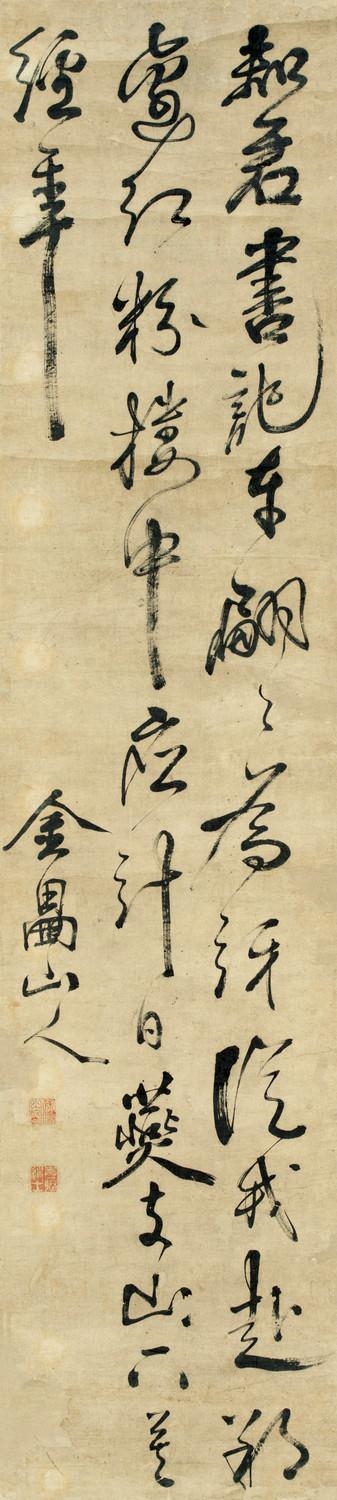 知君書記本翩〻為許從戎赴朔
邊紅粉樓中應計日燕支山下莫
經年
金山人